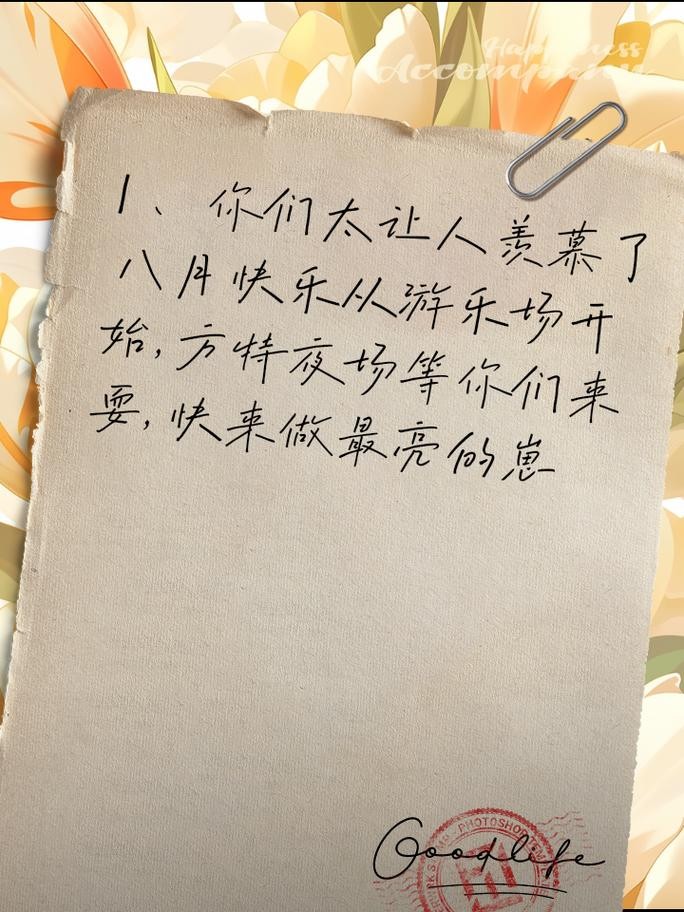 Happiness
Accompany
1、你们太让人羡慕了
八月快乐从游乐场开
始,方特夜场等你们来
耍,快来做最亮的崽
PHOTOSHOP
Goodlife